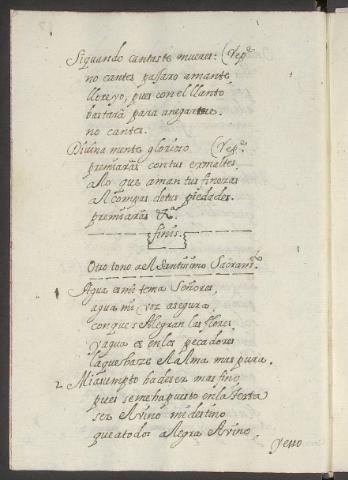 Siquando cantaste mueres: (Rep.ᵉ
no cantes paxaro amante
llore yo, pues con el llanto
bastarà para anegarme.
no cantes.
Divina mente glorioso. (Rep.ᵉ
premiaràs con tus esmaltes
a lo que aman tus finezas
al compas de tus piedades.
premiaràs &ᵃ
finis.
Otro tono al Santissimo Sacram.ᵗᵒ
Agua es mi tema Señores,
agua mi voz asegura
con que se alegran las flores
y agua es en los pecadores
la que haze al Alma mas pura.
2 Mi asumpto ha de ser mas fino
pues se me ha puesto en la testa
ser el vino mi destino
que a todos alegra el vino
y esso